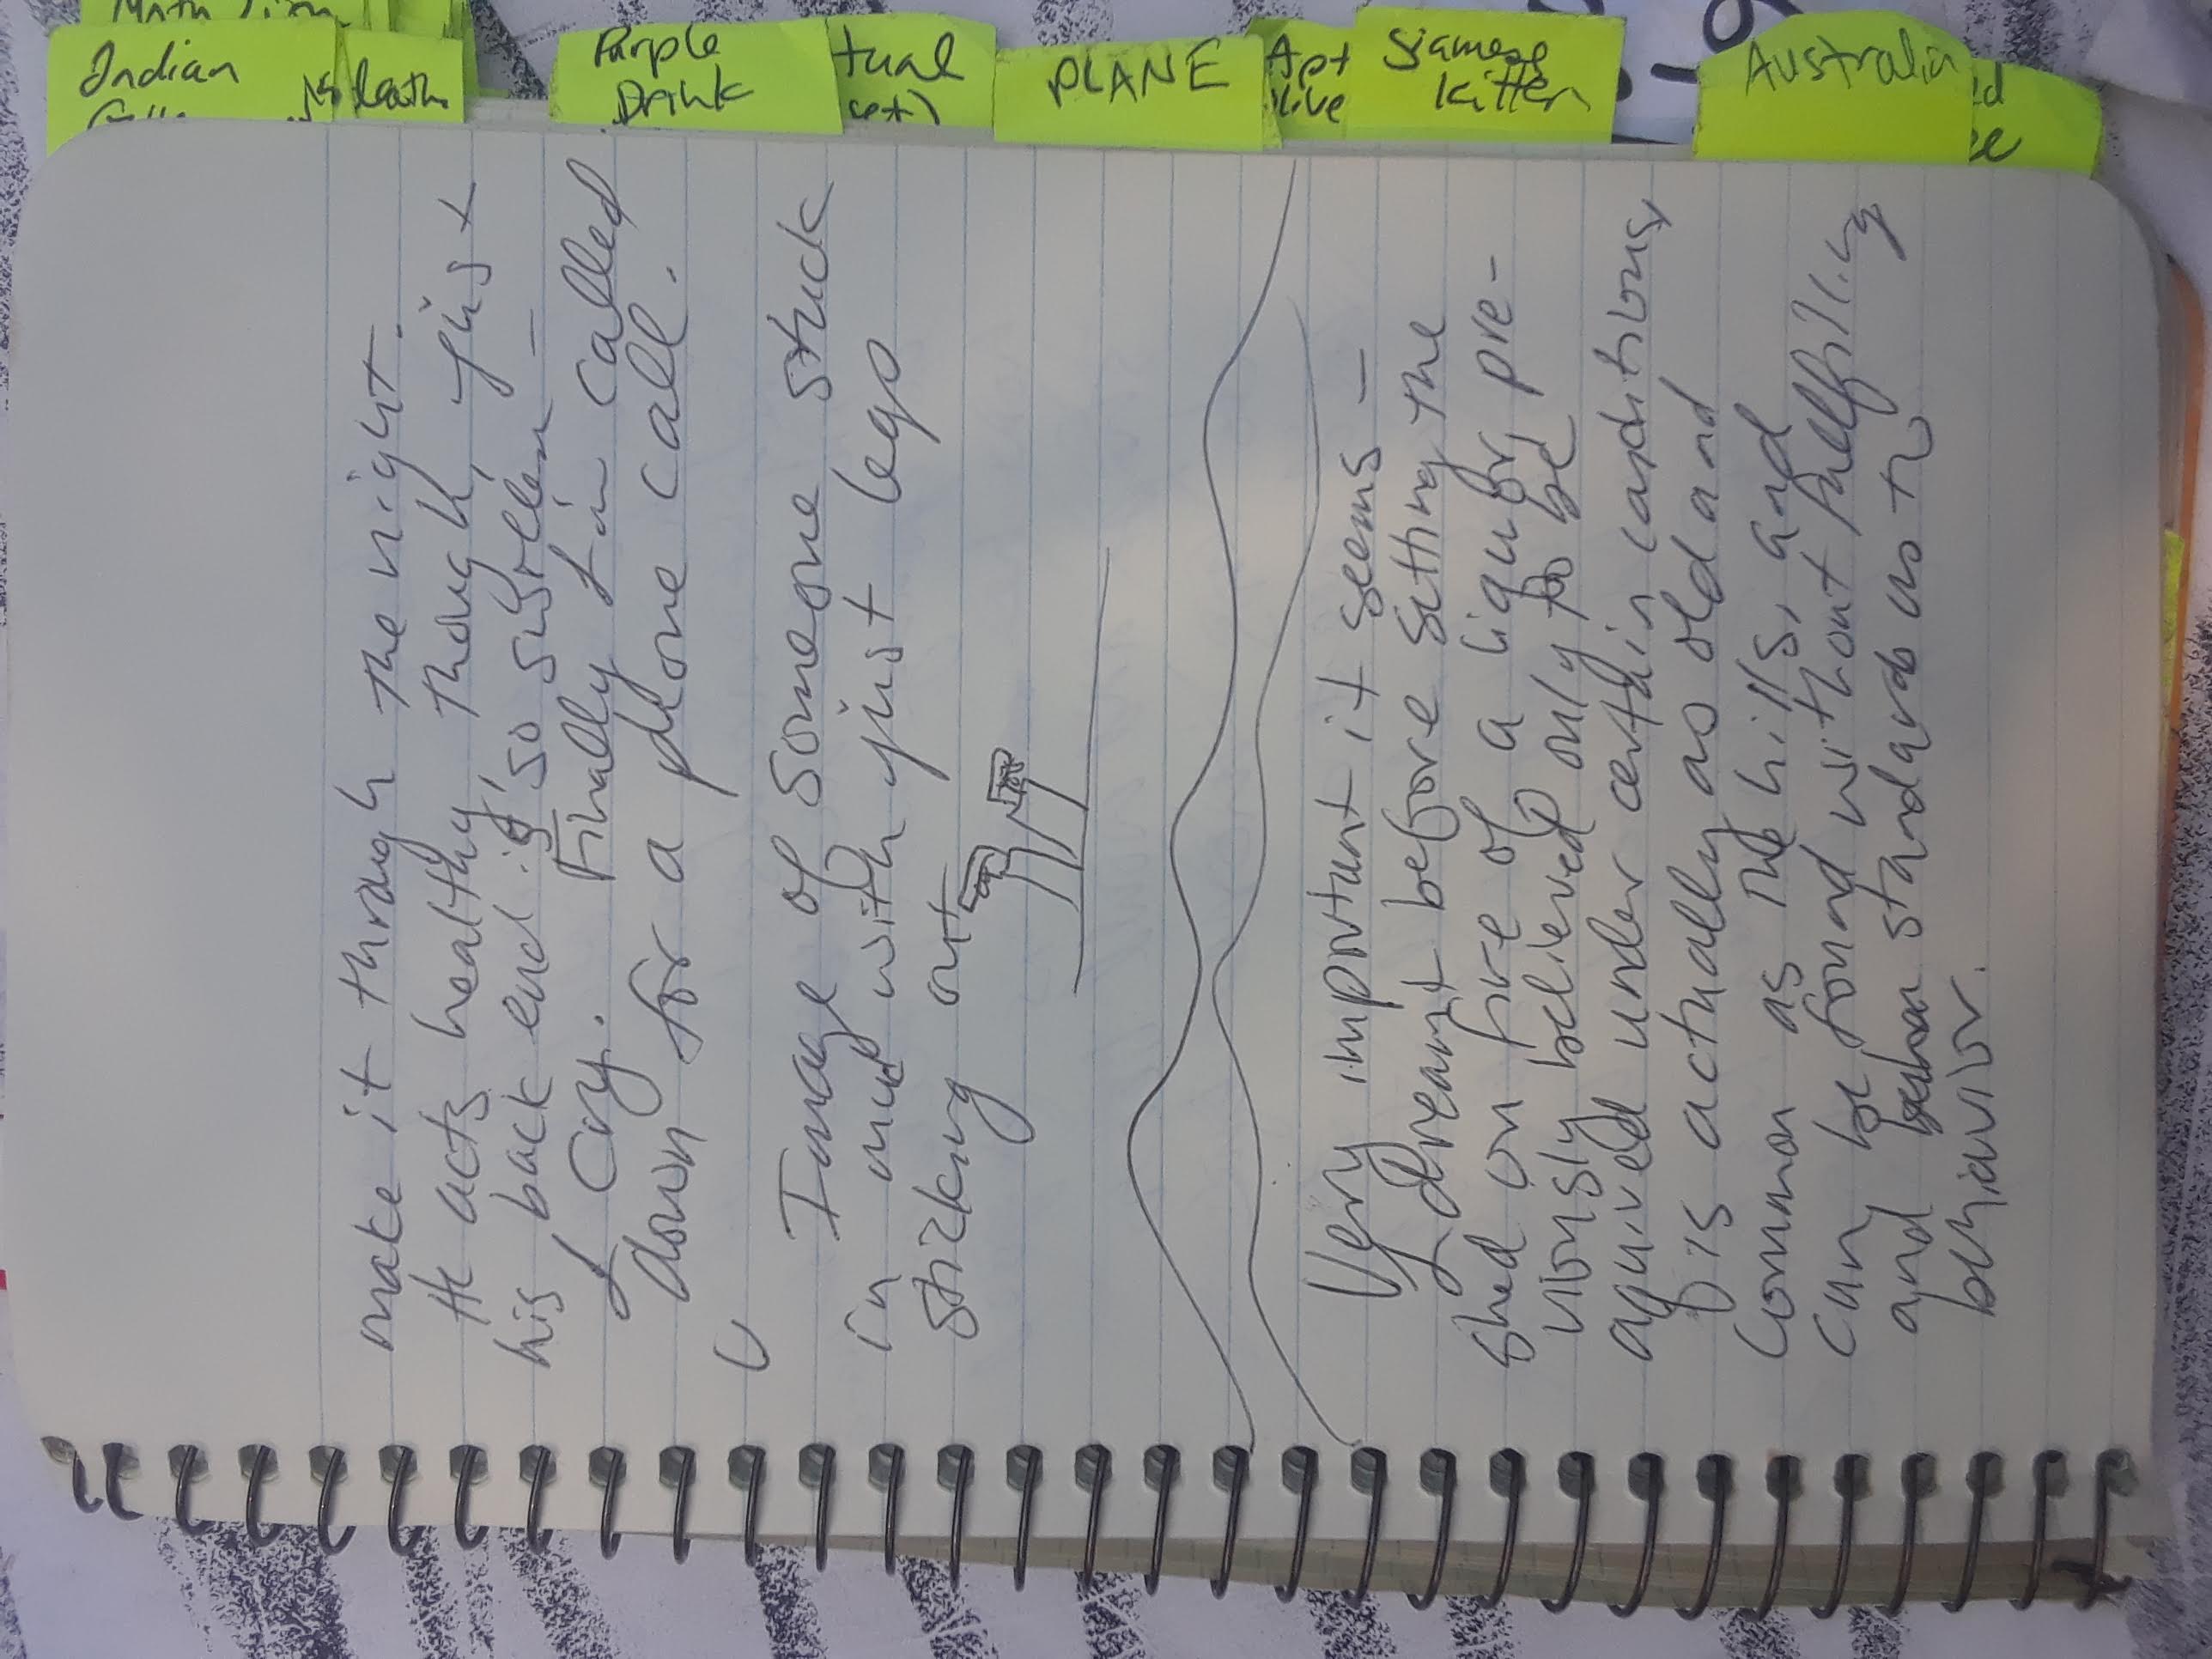 make it through the night.
He acts healthy, though, just
his back end is so swollen —
I cry. Finally I'm called
down for a phone call.
Image of someone stuck
in mud with just legs
sticking out
Very important it seems —
I dreamt before setting the
shed on fire of a liquor pre-
viously believed only to be
aquived under certain conditions,
is actually as old and
common as the hills, and
can be found without fullfilling
and standards as to
behiavior.
Indian
death
Purple
Drink
tual
PLANE
Apt
live
Siamese
Kitten
Australia